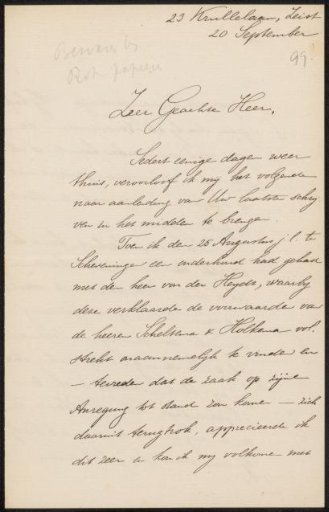 23 Krullelaan, Zeist
20 September
99.
Zeer Geachte Heer,
Sedert eenige dagen weer
thuis, veroorloof ik mij het volgende
naar aanleiding van Uw laatste schrij
ven in het midden te brengen.
Toen ik den 25 Augustus j.l. te
Scheveningen een onderhoud had gehad
met den heer van der Heyde, waarbij
deze verklaarde de voorwaarde van
de heeren Scheltema & Holkema vol-
strekt onaannemelijk te vinden en
— tevreden dat de zaak op zijne
Aanregung tot stand zou komen — zich
daaruit terugtrok, apprecieerde ik
dit zeer en kon ik mij volkomen met